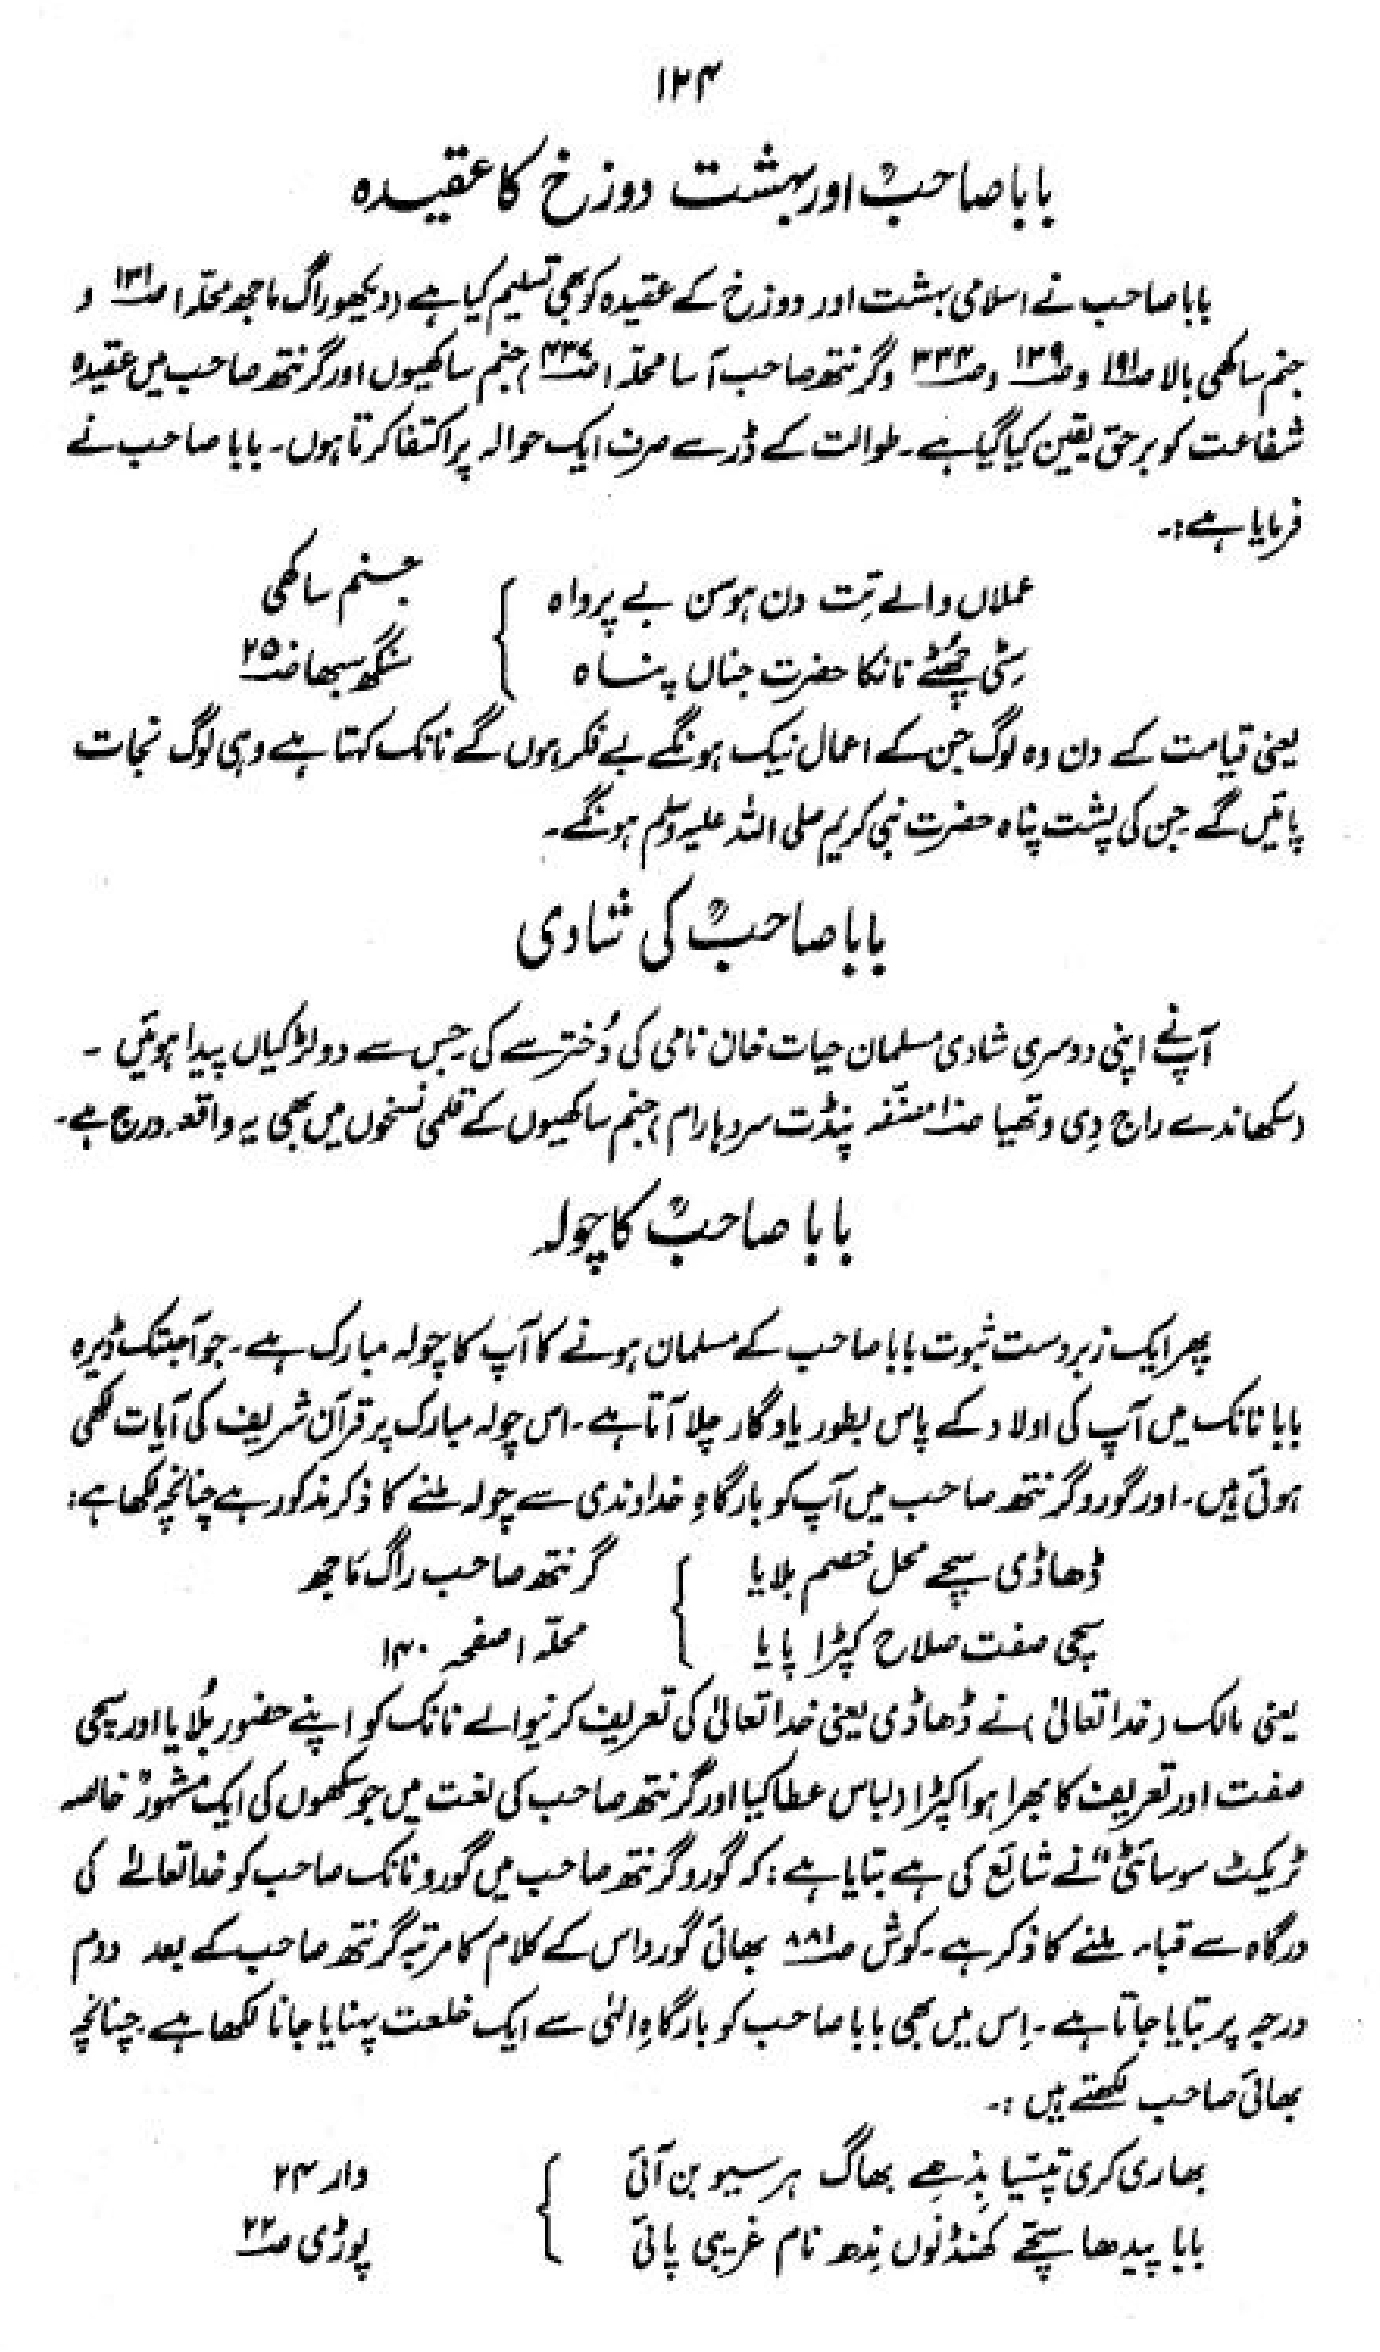 ۱۲۴
بابا صاحبؒ اور بہشت دوزخ کا عقیدہ
بابا صاحب نے اسلامی بہشت اور دوزخ کے عقیدہ کو بھی تسلیم کیا ہے (دیکھو راگ ماجھ محلّہ ۱ صـ۱۳۱ و
جنم ساکھی بالا صـ۱۹۱ و صـ۱۳۹ و صـ۳۳۴ و گرنتھ صاحب آسا محلّہ ۱ صـ۴۳۷) جنم ساکھیوں اور گرنتھ صاحب میں عقیدہ
شفاعت کو برحق یقین کیا گیا ہے۔ طوالت کے ڈر سے صرف ایک حوالہ پر اکتفا کرتا ہوں۔ بابا صاحب نے
فرمایا ہے:۔
عملاں والے تِت دن ہوسن بے پرواہ } جنم ساکھی
سِٹی چھُٹے نانکا حضرت جناں پناہ سنگھ سبھا صـ۲۵
یعنی قیامت کے دن وہ لوگ جن کے اعمال نیک ہونگے بے فکر ہوں گے نانک کہتا ہے وہی لوگ نجات
پائیں گے جن کی پشت پناہ حضرت نبی کریم صلی اللہ علیہ وسلم ہونگے۔
بابا صاحبؒ کی شادی
آپ نے اپنی دوسری شادی مسلمان حیات خان نامی کی دُختر سے کی۔ جس سے دو لڑکیاں پیدا ہوئیں ۔
(سکھاندے راج دِی وتھیا صـ۱ مصنّفہ پنڈت سردہارام) جنم ساکھیوں کے قلمی نسخوں میں بھی یہ واقعہ درج ہے۔
بابا صاحبؒ کا چولہ
پھر ایک زبردست ثبوت بابا صاحب کے مسلمان ہونے کا آپ کا چولہ مبارک ہے۔ جو آجتک ڈیرہ
بابا نانک میں آپ کی اولاد کے پاس بطور یادگار چلا آتا ہے۔ اس چولہ مبارک پر قرآن شریف کی آیات لکھی
ہوئی ہیں۔ اور گورو گرنتھ صاحب میں آپ کو بارگاہِ خداوندی سے چولہ ملنے کا ذکر مذکور ہے چنانچہ لکھا ہے:
ڈھاڈی سچے محل خصم بلایا } گرنتھ صاحب راگ ماجھ
سچی صفت صلاح کپڑا پایا محلّہ ۱ صفحہ ۱۴۰
یعنی مالک (خدا تعالیٰ) نے ڈھاڈی یعنی خدا تعالیٰ کی تعریف کرنیوالے نانک کو اپنے حضور بُلایا اور سچی
صفت اور تعریف کا بھرا ہوا کپڑا (لباس عطا کیا اور گرنتھ صاحب کی لغت میں جو سکھوں کی ایک مشہور "خالصہ
ٹریکٹ سوسائٹی" نے شائع کی ہے بتایا ہے: کہ گورو گرنتھ صاحب میں گورو نانک صاحب کو خدا تعالےٰ کی
درگاہ سے قباء ملنے کا ذکر ہے۔ کوش صـ۸۸۱ بھائی گورداس کے کلام کا مرتبہ گرنتھ صاحب کے بعد دوم
درجہ پر بتایا جاتا ہے۔ اِس میں بھی بابا صاحب کو بارگاہِ الٰہی سے ایک خلعت پہنایا جانا لکھا ہے۔ چنانچہ
بھائی صاحب لکھتے ہیں :۔
بھاری کری تپسّیا بڈھے بھاگ ہر سیو بن آئی } وار ۲۴
بابا پیدھا سچّے کھنڈ نُوں نِدھ نام غریبی پائی پوڑی صـ۲۲